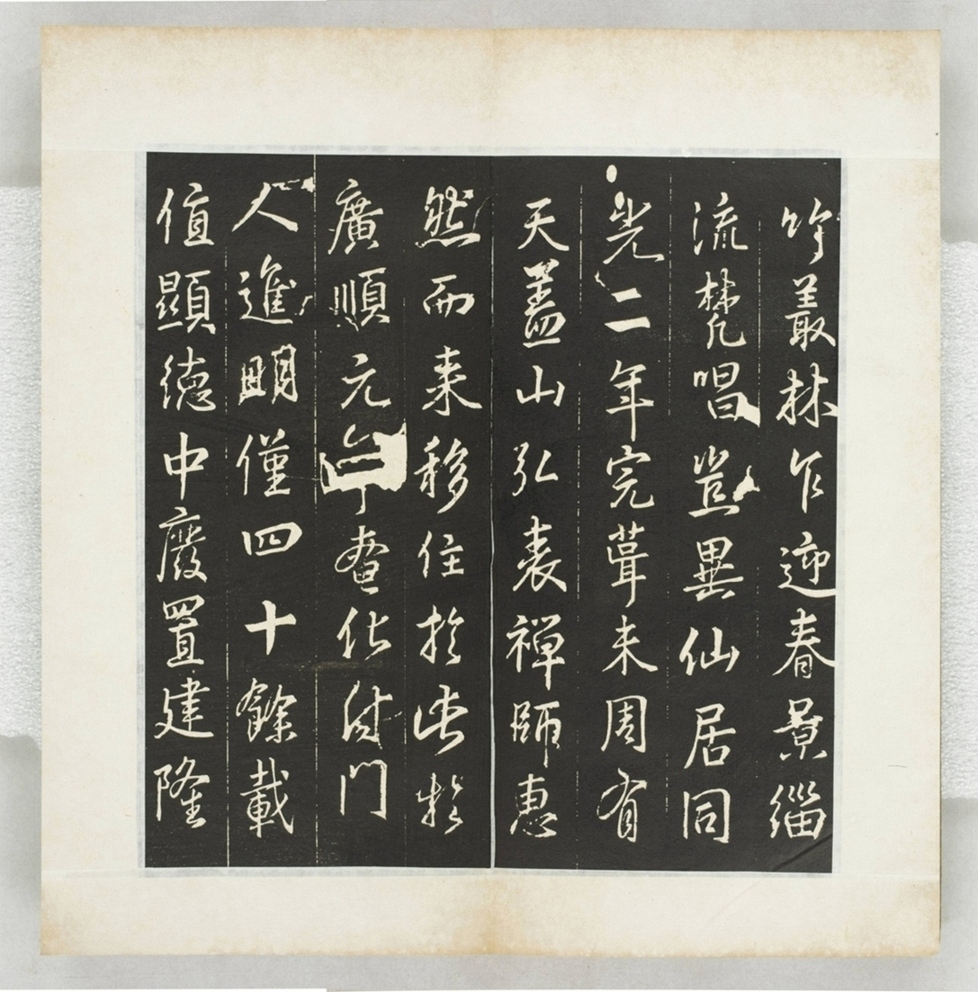 竹叢林乍迎春景緇
流梵唱豈異仙居同
光二年完葺未周有
天蓋山弘表禪師惠
然而來移住於此於
廣順元年奄化付門
人進明僅四十餘載
值顯德中廢置建隆